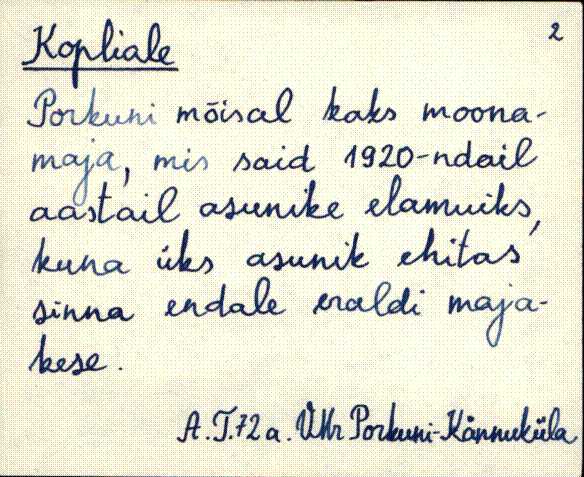 2
Kopliale
Porkuni mõisal kaks moona-
maja, mis said 1920-ndail
aastail asunike elamuiks,
kuna üks asunik ehitas
sinna endale eraldi maja-
kese.
A. T. 72 a. Porkuni-Kännuküla